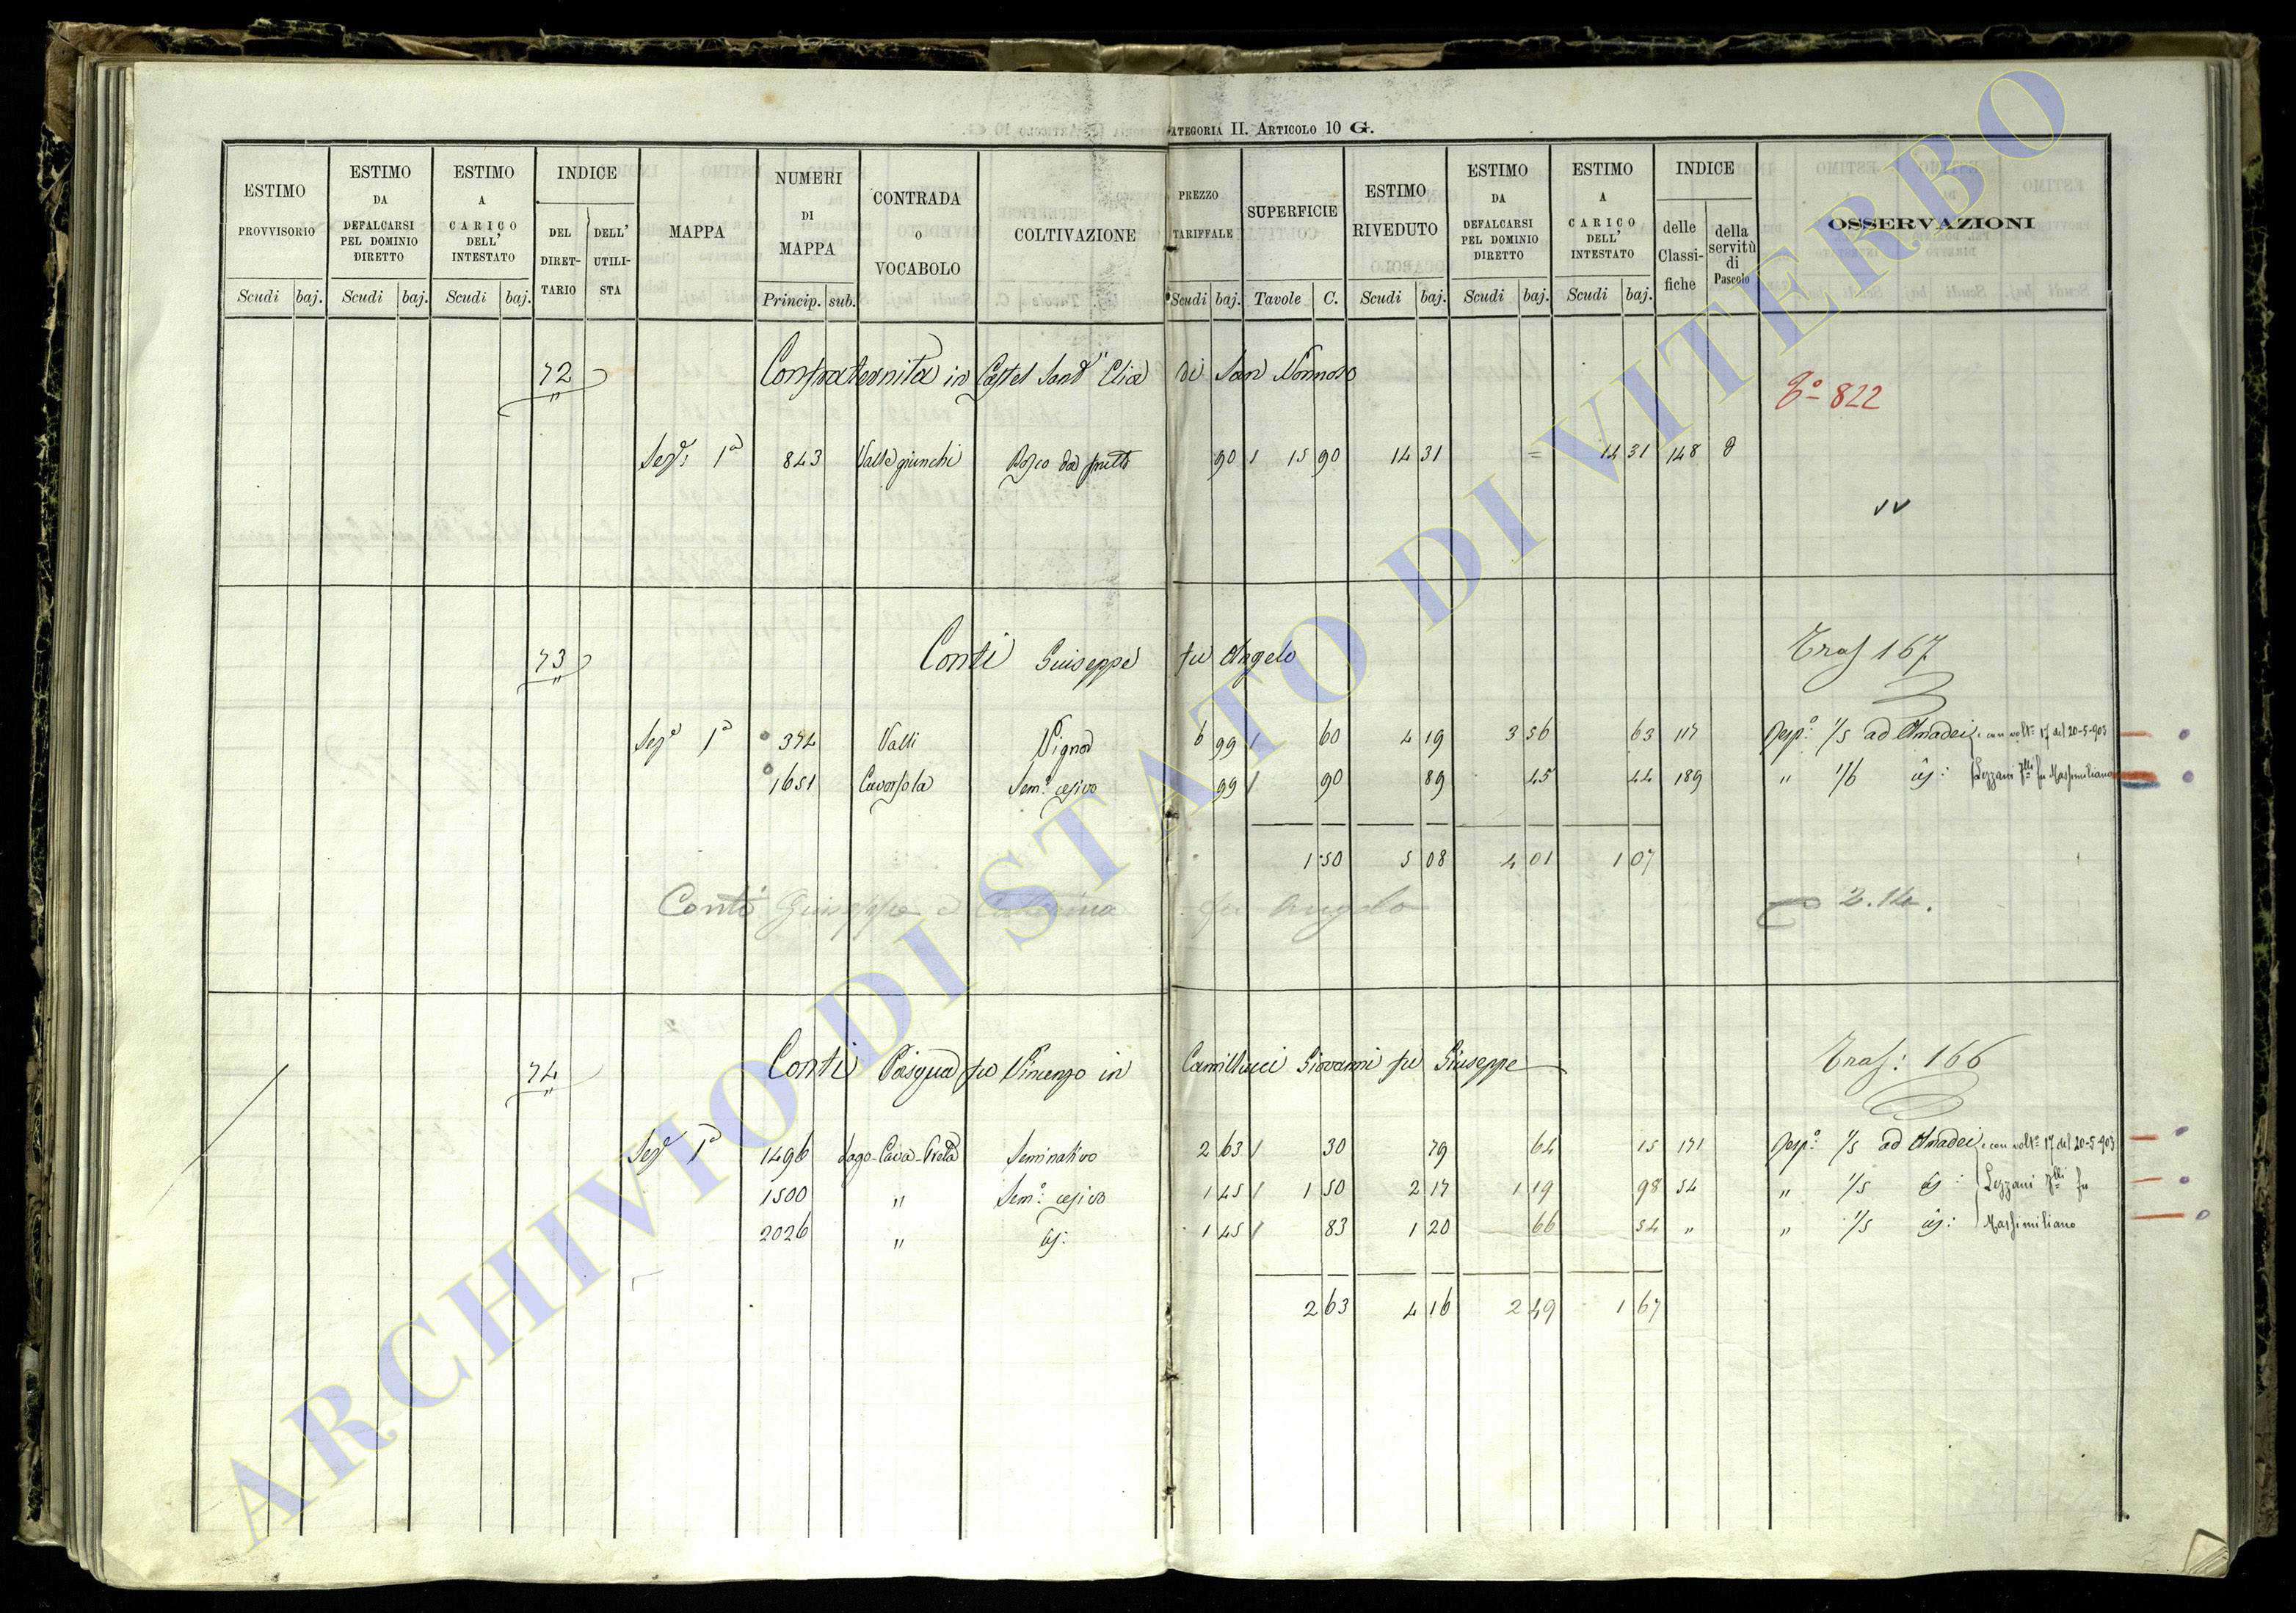 CATEGORIA II. ARTICOLO 10 G.
ESTIMO PROVVISORIO Scudi baj.
ESTIMO DA DEFALCARSI PEL DOMINIO DIRETTO Scudi baj.
ESTIMO A CARICO DELL' INTESTATO Scudi baj.
INDICE DEL DIRET-TARIO DELL' UTILI-STA
MAPPA
NUMERI DI MAPPA Princip. sub.
CONTRADA O VOCABOLO
COLTIVAZIONE
PREZZO TARIFFALE Scudi baj.
SUPERFICIE Tavole C.
ESTIMO RIVEDUTO Scudi baj.
ESTIMO DA DEFALCARSI PEL DOMINIO DIRETTO Scudi baj.
ESTIMO A CARICO DELL' INTESTATO Scudi baj.
INDICE delle Classi-fiche della servitù di Pascolo
OSSERVAZIONI
72 Confraternita in Castel Sant'' Elia di San Nonnoso
822
Sez: 1a 843 Valle giunchi Bosco da frutto 90 15 90 14 31 = 14 31 148
73 Conti Giuseppe fu Angelo Tras 167
Seza 1a 374 Valli Vigna 6 99 60 4 19 3 56 63 117 Resp: 1/5 ad Amadei e con volt: 17 del 20-5-903
1651 Cavorsola Sem: cesivo 99 90 89 45 44 189 " 1/6 Lezzani flli fu Massimiliano
1 50 5 08 4 01 1 07
Conti Giuseppe e Caterina fu Angelo 2.14.
74 Conti Pasqua fu Vincenzo in Camillucci Giovanni fu Giuseppe Tras: 166
Sez 1a 1496 Lago-Cava-Preta Seminativo 2 63 30 79 64 15 171 Resp: 1/5 ad Amadei e con volt: 17 del 20-5-903
1500 " Sem: cesivo 1 45 1 50 2 17 1 19 98 54 " 1/5 Lezzani flli fu
2026 " 1 45 83 1 20 66 54 " " 1/5 Massimiliano
2 63 4 16 2 49 1 67
ARCHIVIO DI STATO DI VITERBO